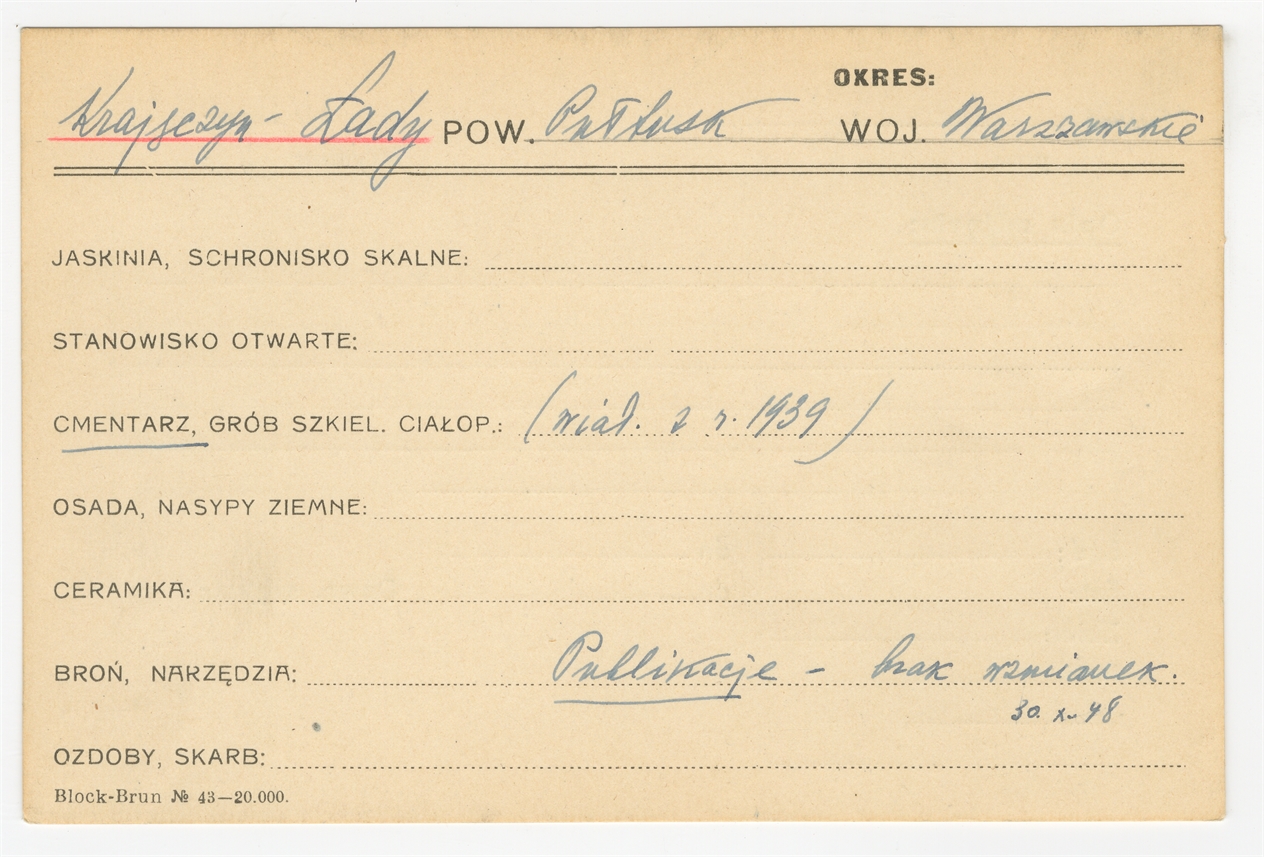 OKRES:
Krajęczyn - Łady POW. Pułtusk WOJ. Warszawskie
JASKINIA, SCHRONISKO SKALNE:
STANOWISKO OTWARTE:
CMENTARZ, GRÓB SZKIEL. CIAŁOP.: (wiad. z r. 1939)
OSADA, NASYPY ZIEMNE:
CERAMIKA:
BROŃ, NARZĘDZIA: Publikacje - brak wzmianek.
30. X. 48
OZDOBY, SKARB:
Block-Brun № 43—20.000.